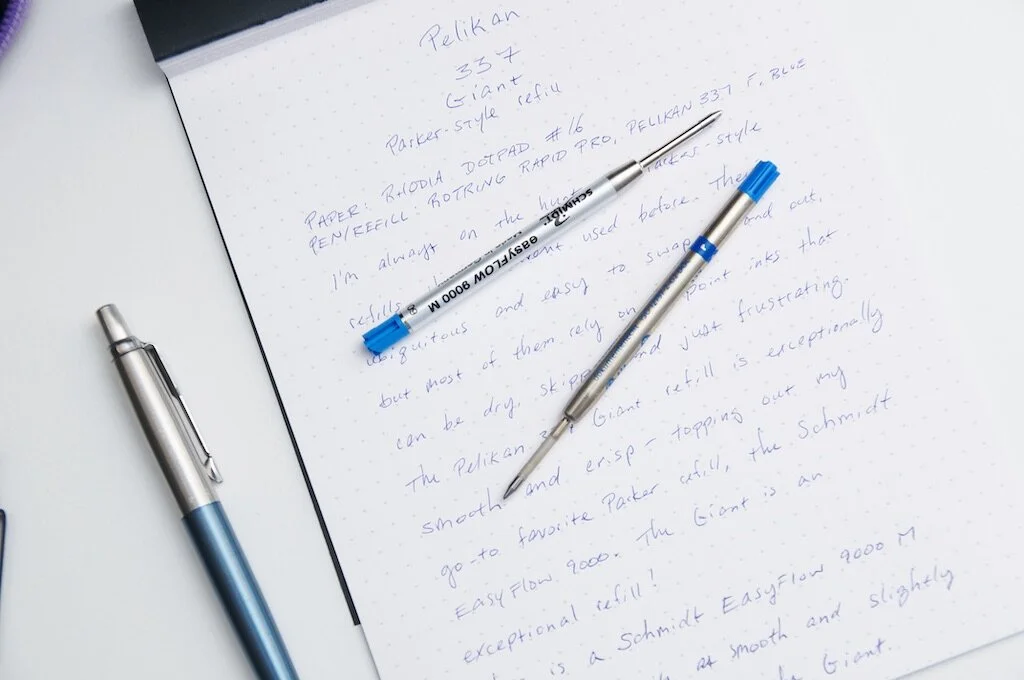 Pelikan
337
Giant
Parker-style refill
PAPER: RHODIA DOTPAD #16
PEN/REFILL ROTRING RAPID PRO, PELIKAN 337 F. BLUE
I'm always on the hunt Parker-style
refills used before. They
ubiquitous and easy to swap and out,
but most of them rely on point inks that
can be dry, and just frustrating.
The Pelikan Giant refill is exceptionally
smooth and crisp - topping out my
go-to favorite Parker refill, the Schmidt
EasyFlow 9000. The Giant is an
exceptional refill!
is a Schmidt EasyFlow 9000 M
smooth and slightly
Giant.
SCHMIDT
easyFLOW 9000 M